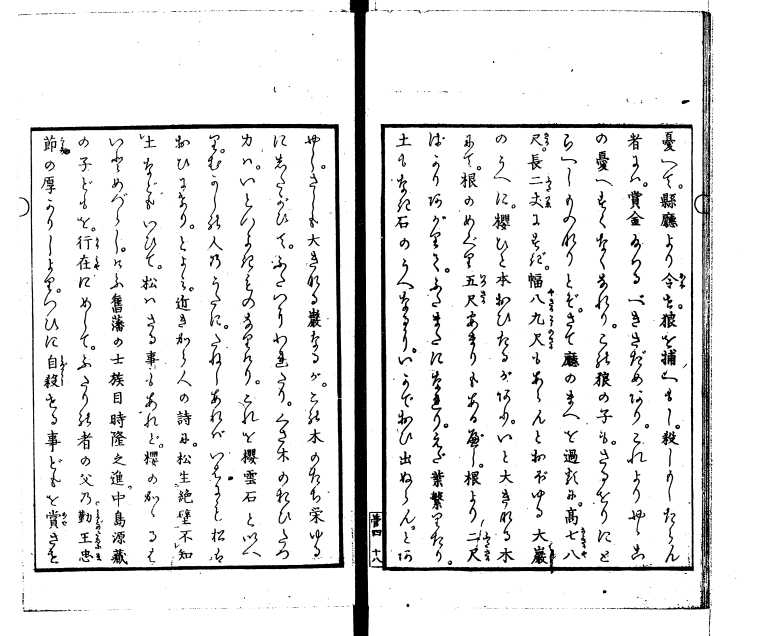 憂へて。縣廳より令を。狼を捕へもし。殺しもしたらん
者には。賞金たまはるべきさだめあり。これよりやゝ此
の憂へすくなくなれり。この狼の子も。さるをりにと
らへしものなりとぞ。さて廳のまへを過るに。高七八
尺。長二丈にすぎ。幅八九尺もあらんとおぼゆる大巖
のうへに。櫻ひと本おひたるがあり。いと大きなる木
にて。根のめぐり五尺あまりもあるべし。根より二尺
ばかりあがりて。ふたまたになれり。えだ葉繁りたり。
土もなき石のうへなり。いかでおひ出ぬらん。とあ
巻四 十八
やし。さしも大きなる巖なるが。この木のたち栄ゆる
にしたがひて。ふたつにわれたり。くさ木のおひたつ
力ハ。いといみじきものなりけり。これを櫻雲石といへ
り。むかしの人乃うたに。たねしあれバいはにも松は
おひにけり。とよみ。近きから人の詩に。松生絶壁不知
土などもいひて。松ハさる事もあれど。櫻のかゝるは
いとめづらし。けふ舊藩の士族目時隆之進。中島源藏
の子どもを。行在にめして。ふたりの者の父乃勤王忠
節の厚かりしより。つひに自殺せる事どもを賞させ